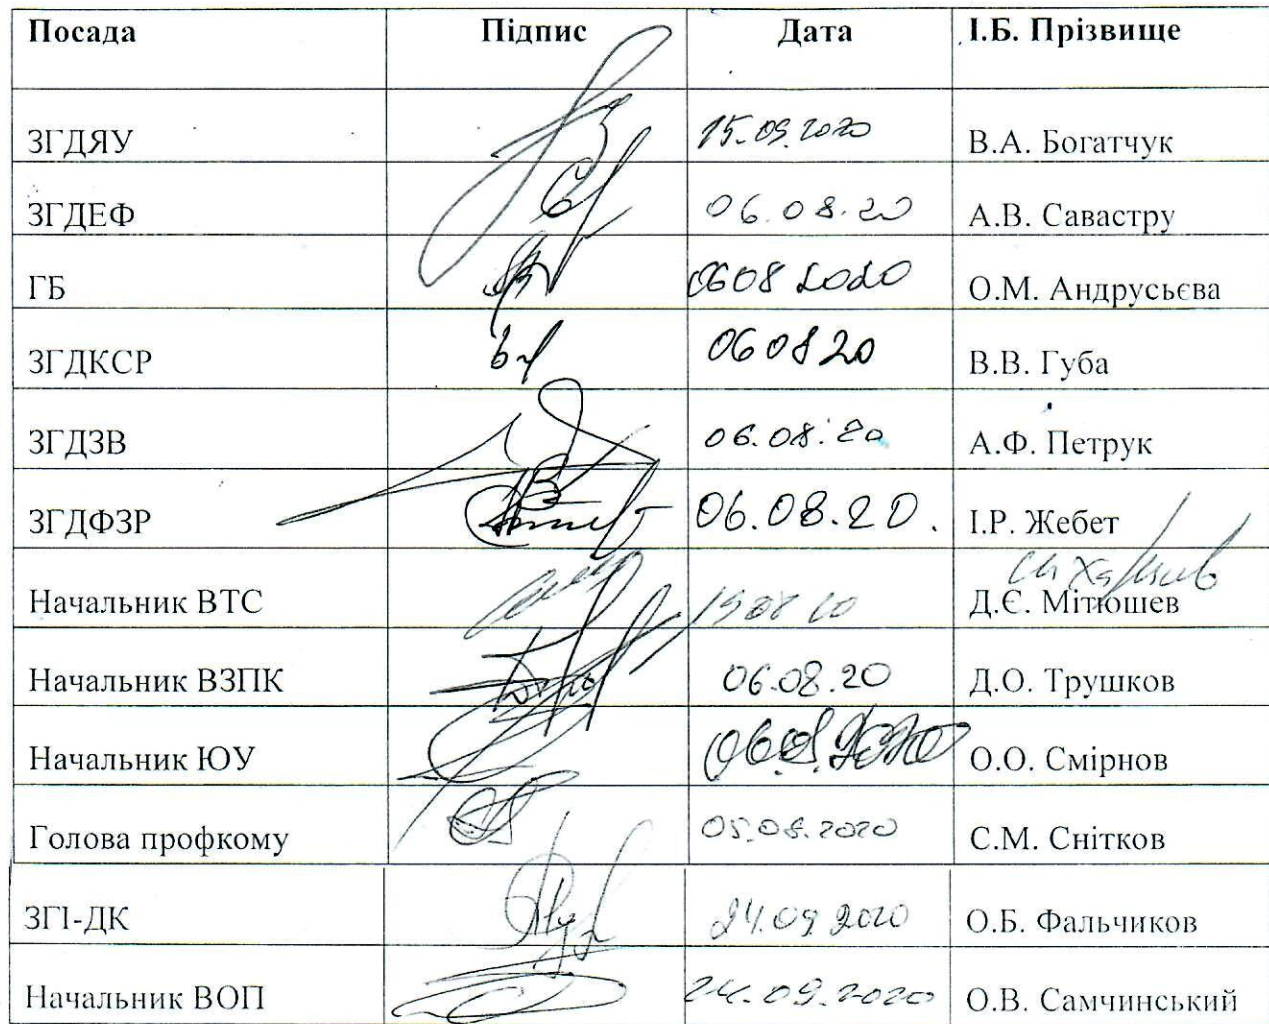 Посада Підпис Дата І.Б. Прізвище
ЗГДЯУ 15.09.2020 В.А. Богатчук
ЗГДЕФ 06.08.20 А.В. Савастру
ГБ 0608 2020 О.М. Андрусьєва
ЗГДКСР 060820 В.В. Губа
ЗГДЗВ 06.08.20 А.Ф. Петрук
ЗГДФЗР 06.08.20. І.Р. Жебет
Начальник ВТС Д.Є. Мітюшев
Начальник ВЗПК 06.08.20 Д.О. Трушков
Начальник ЮУ 06.08.2020 О.О. Смірнов
Голова профкому 05.08.2020 С.М. Снітков
ЗГІ-ДК 24.09 2020 О.Б. Фальчиков
Начальник ВОП 24.09.2020 О.В. Самчинський